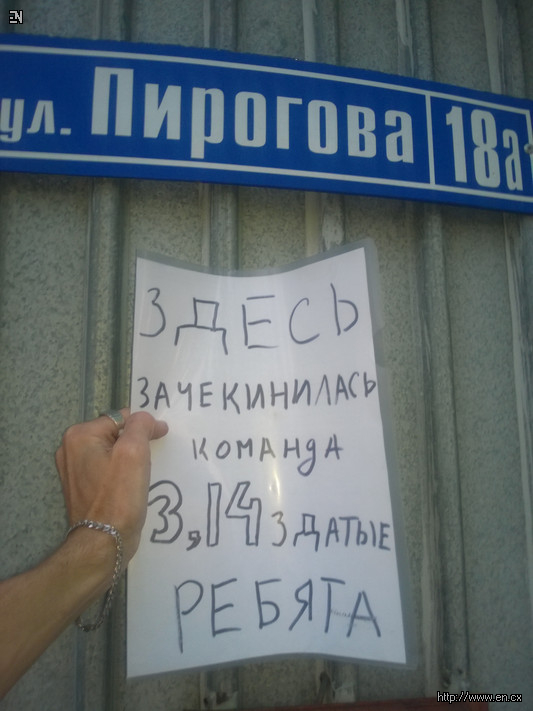 EN
ул. Пирогова 18а
ЗДЕСЬ
ЗАЧЕКИНИЛАСЬ
КОМАНДА
3,14ЗДАТЫЕ
РЕБЯТА
http://www.en.cx